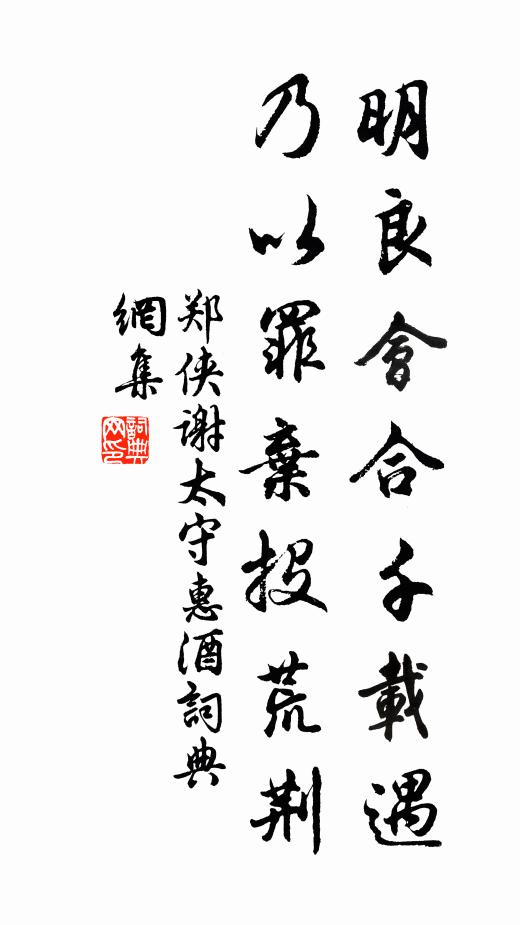 明良會合千載遇
乃以罪棄投荒荆
郑侠谢太守惠酒詞典
網集
詞典
网印